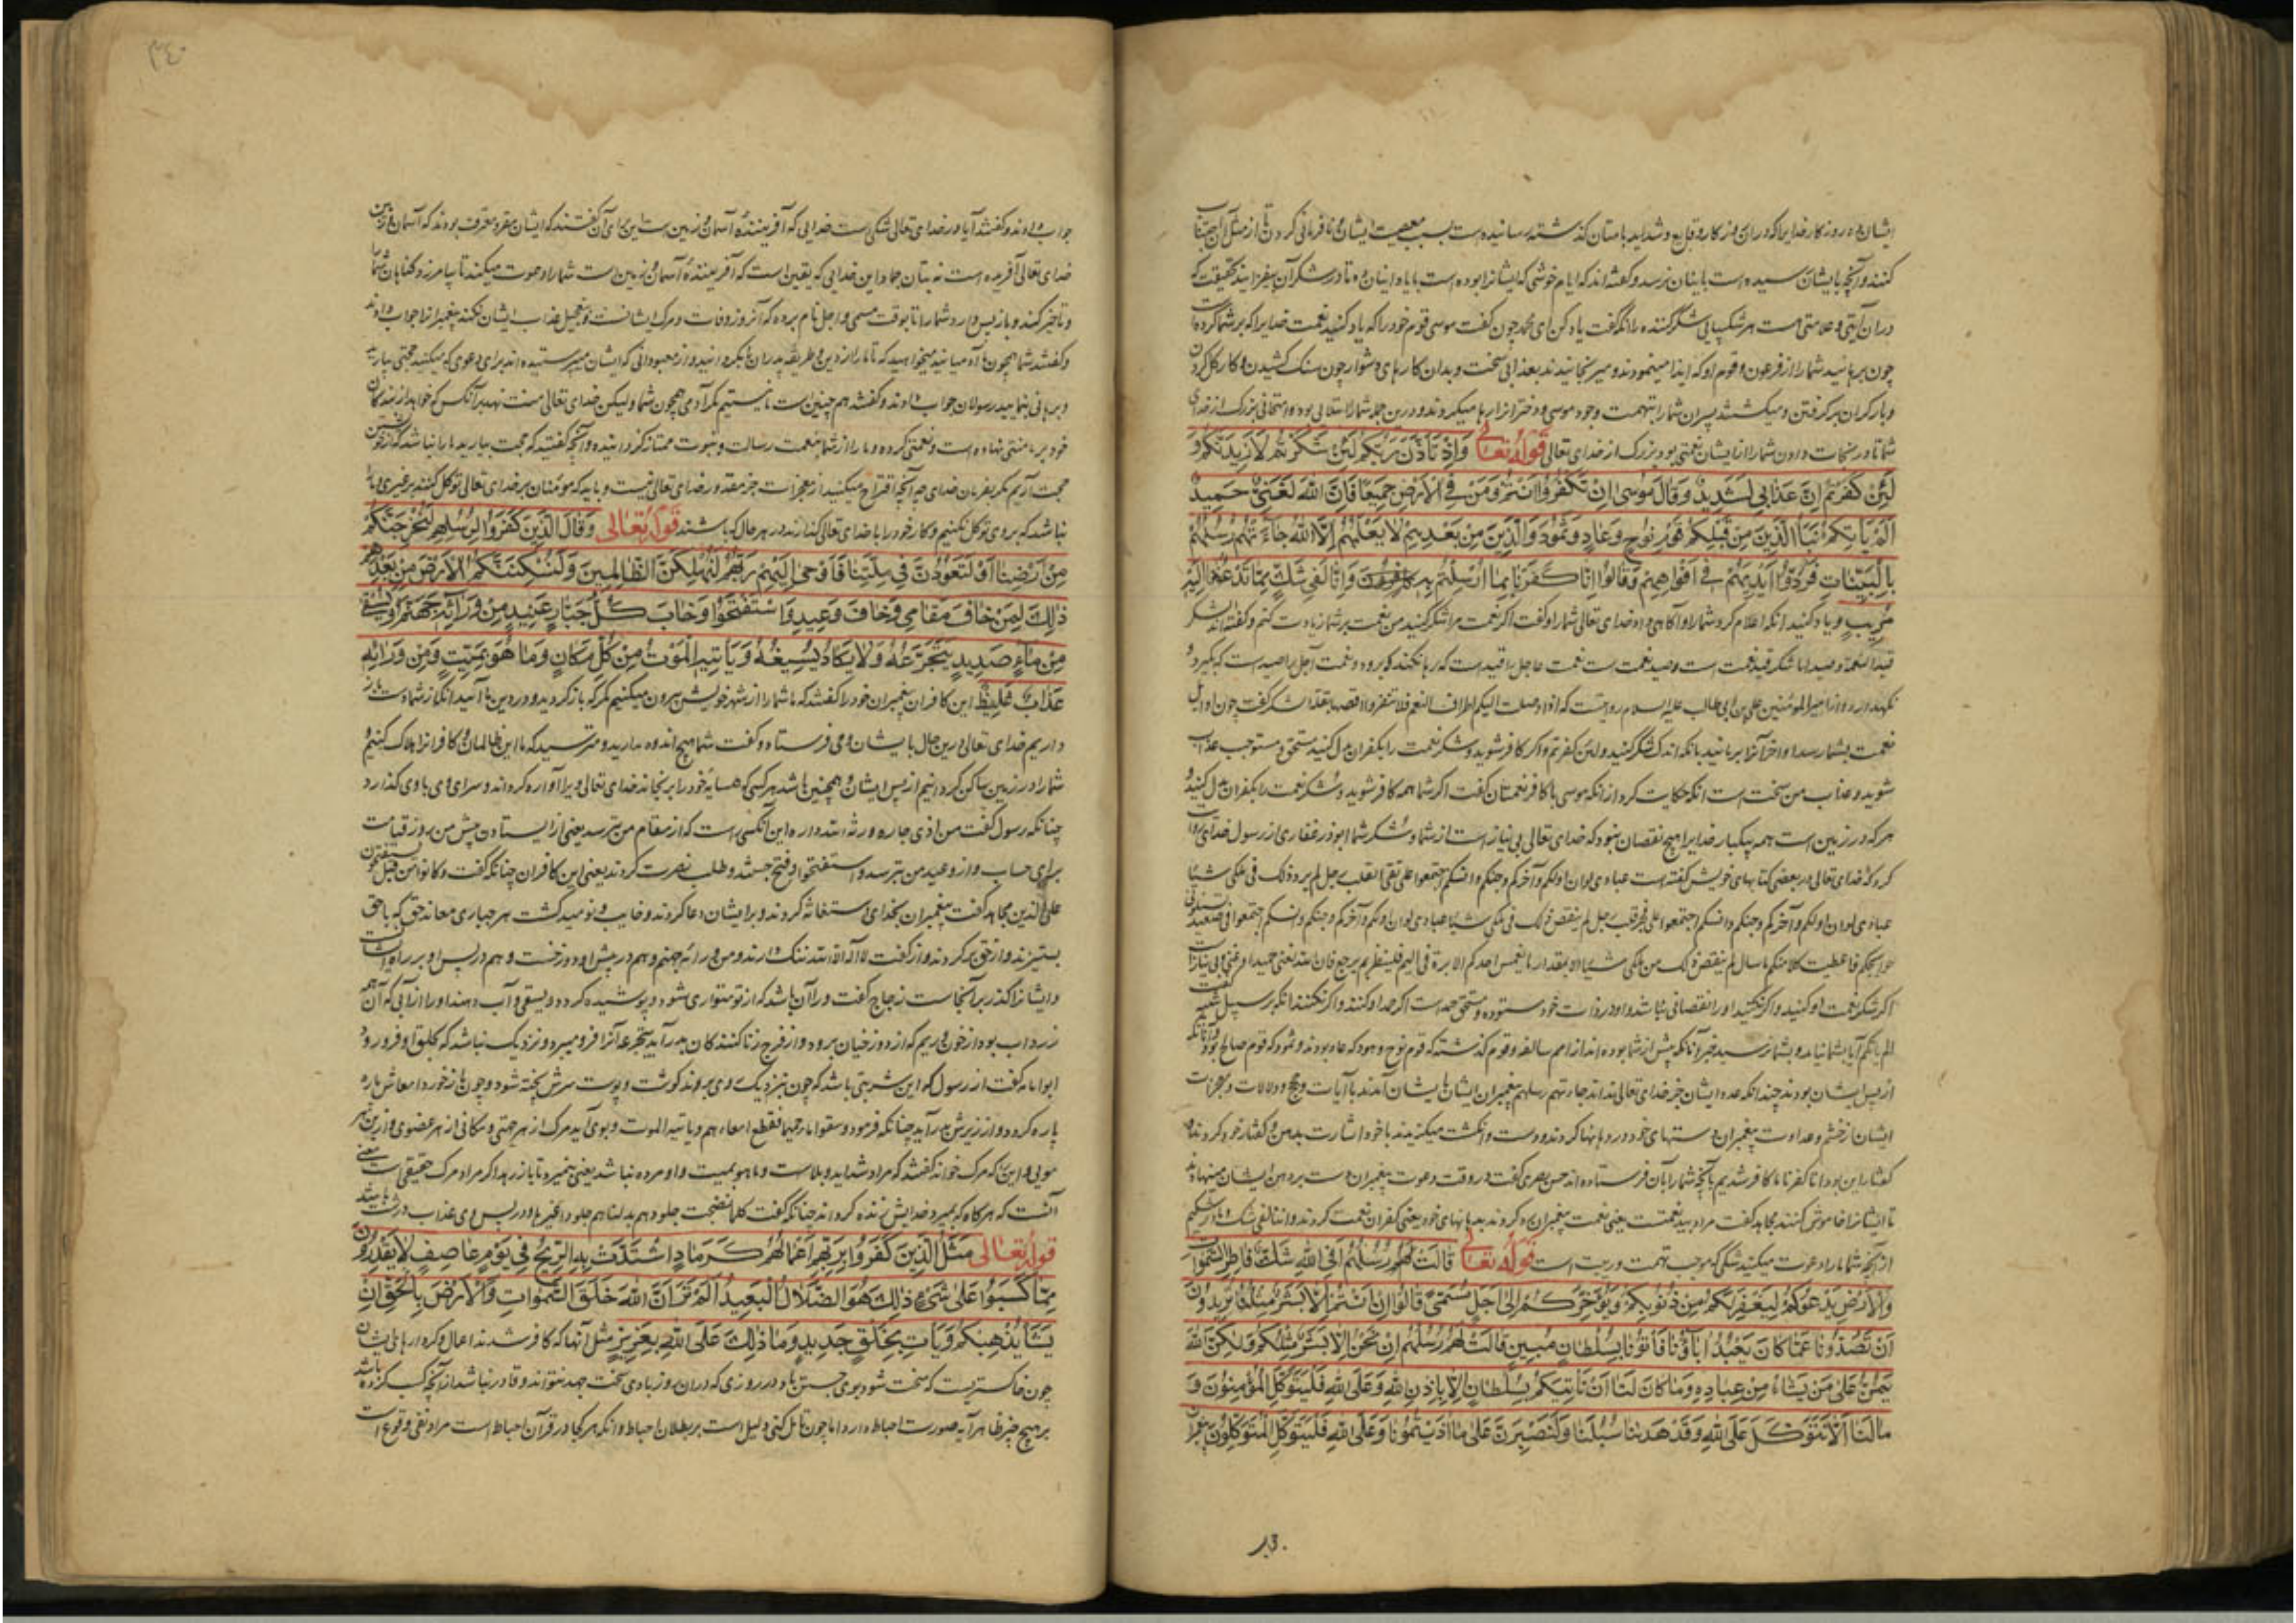 ایشان ده روزگار خدایرا که دران روزگار وقایع و شداید باستان گذشته رسانیده است بسبب معصیت ایشان و نافرمانی کردن تا از مثل آن اجتناب
کنند و آنچه بایشان رسیده است باینان نرسد و گفته‌اند که ایام خوشی که ایشانرا بوده است بایاد اینان ده تا در شکر آن بیفزایند که
دران آیتی و علامتی است هر شکیبایی شکر کننده را آنگه گفت یاد کن ای محمد چون گفت موسی قوم خود را که یاد کنید نعمت خدایرا که بر شما کرده است
چون برهانید شما را از فرعون و قوم او که ایذا مینمودند و میرنجانیدند بعذابی سخت و بدان کارهای دشوار چون سنگ کشیدن و کار گل کردن
و بار گران برگرفتن و میکشتند پسران شما را بتهمت وجود موسی و دخترانرا رها میکردند و درین جمله شما را ابتلایی بود و امتحانی بزرگ از خدای
شما تا در نجات دادن شما را از ایشان نعمتی بود بزرگ از خدای تعالی قوله تعالی وَاِذْ تَاَذَّنَ رَبُّكُمْ لَئِنْ شَكَرْتُمْ لَاَزِيدَنَّكُمْ وَ
لَئِنْ كَفَرْتُمْ اِنَّ عَذَابِي لَشَدِيدٌ وَقَالَ مُوسٰى اِنْ تَكْفُرُوا اَنْتُمْ وَمَنْ فِي الْاَرْضِ جَمِيعًا فَاِنَّ اللّٰهَ لَغَنِيٌّ حَمِيدٌ
اَلَمْ يَأْتِكُمْ نَبَأُ الَّذِينَ مِنْ قَبْلِكُمْ قَوْمِ نُوحٍ وَعَادٍ وَثَمُودَ وَالَّذِينَ مِنْ بَعْدِهِمْ لَا يَعْلَمُهُمْ اِلَّا اللّٰهُ جَاءَتْهُمْ رُسُلُهُمْ
بِالْبَيِّنَاتِ فَرَدُّوا اَيْدِيَهُمْ فِي اَفْوَاهِهِمْ وَقَالُوا اِنَّا كَفَرْنَا بِمَا اُرْسِلْتُمْ بِهِ وَاِنَّا لَفِي شَكٍّ مِمَّا تَدْعُونَنَا اِلَيْهِ
مُرِيبٍ و یاد کنید آنگه اعلام کرد شما را و آگاهی داد خدای تعالی شما را و گفت اگر نعمت مرا شکر کنید من نعمت بر شما زیادت کنم و گفته‌اند شکر
قید نعمت است و صید نعمت است نعمت عاجل را قید است که رها نکند که برود و نعمت آجل را صید است که بگیرد و
نگهدارد و از امیر المومنین علی بن ابی طالب علیه السلام روایتست که اذا وصلت الیکم اطراف النعم فلا تنفروا اقصها بقلة الشکر گفت چون اوایل
نعمت بشما رسد اواخر آنرا برمانید بآنکه اندک شکر کنید ولئن کفرتم و اگر کافر شوید و شکر نعمت را بکفران بدل کنید مستحق و مستوجب عذاب
شوید و عذاب من سخت است آنگه حکایت کرد از آنکه موسی با کافر نعمتان گفت اگر شما همه کافر شوید و شکر نعمت را بکفران بدل کنید و
هر که در زمین است همه بیکبار خدایرا هیچ نقصان نبود که خدای تعالی بی نیاز است از شما و شکر شما ابوذر غفاری از رسول خدای روایت
کرد که خدای تعالی در بعضی کتابهای خویش گفته است عبادی لو ان اولکم و آخرکم و جنکم و انسکم اجتمعوا علی تقی القلب رجل لم یزد ذلک فی ملکی شیئا
عبادی لو ان اولکم و آخرکم و جنکم و انسکم اجتمعوا علی فجر قلب رجل لم ینقص ذلک فی ملکی شیئا عبادی لو ان اولکم و آخرکم و جنکم و انسکم اجتمعوا فی صعید
فاعطیت کلا منکم ما سال لم ینقص ذلک من ملکی شیئا الا بمقدار ما یغمس احدکم الابرة فی الیم فلینظر بم یرجع فان الله لغنی حمید او غنی و بی نیاز است
اگر شکر نعمت او کنید و اگر نکنید او را نقصانی نباشد و او در ذات خود ستوده و مستحق حمد است اگر حمد او کنند و اگر نکنند آنگه بر سبیل
الم یاتکم آیا بشما نیامد و بشما نرسید خبر آنانکه پیش از شما بوده‌اند از امم سالفه و قوم گذشته که قوم نوح و هود که عاد بودند و ثمود که قوم صالح بودند و آنانکه
از پس ایشان بودند چندانکه عدد ایشان جز خدای تعالی نداند جاءتهم رسلهم پیغمبران ایشان بایشان آمدند با آیات و حجج و دلالات و معجزات
ایشان از خشم و عداوت پیغمبران دستهای خود در دهانها کردند و دست و انگشت میگزیدند یا خود اشارت بدهن و گفتار خود کردند
گفتار این بود انا کفرنا ما کافر شدیم بآنچه شما را بآن فرستاده‌اند حسن بصری گفت در وقت دعوت پیغمبران دست بر دهن ایشان مینهادند
تا ایشانرا خاموش کنند مجاهد گفت مراد بید نعمتست یعنی نعمت پیغمبران رد کردند بدهانهای خود یعنی کفران نعمت کردند و انا لفی شک و ما در شکیم
از آنچه شما ما را دعوت میکنید شکی که موجب تهمت و ریبت است قوله تعالی قَالَتْ لَهُمْ رُسُلُهُمْ اَفِي اللّٰهِ شَكٌّ فَاطِرِ السَّمٰوَاتِ
وَالْاَرْضِ يَدْعُوكُمْ لِيَغْفِرَ لَكُمْ مِنْ ذُنُوبِكُمْ وَيُؤَخِّرَكُمْ اِلٰى اَجَلٍ مُسَمًّى قَالُوا اِنْ اَنْتُمْ اِلَّا بَشَرٌ مِثْلُنَا تُرِيدُونَ
اَنْ تَصُدُّونَا عَمَّا كَانَ يَعْبُدُ اٰبَاؤُنَا فَأْتُونَا بِسُلْطَانٍ مُبِينٍ قَالَتْ لَهُمْ رُسُلُهُمْ اِنْ نَحْنُ اِلَّا بَشَرٌ مِثْلُكُمْ وَلٰكِنَّ اللّٰهَ
يَمُنُّ عَلٰى مَنْ يَشَاءُ مِنْ عِبَادِهِ وَمَا كَانَ لَنَا اَنْ نَأْتِيَكُمْ بِسُلْطَانٍ اِلَّا بِاِذْنِ اللّٰهِ وَعَلَى اللّٰهِ فَلْيَتَوَكَّلِ الْمُؤْمِنُونَ وَ
مَا لَنَا اَلَّا نَتَوَكَّلَ عَلَى اللّٰهِ وَقَدْ هَدٰينَا سُبُلَنَا وَلَنَصْبِرَنَّ عَلٰى مَا اٰذَيْتُمُونَا وَعَلَى اللّٰهِ فَلْيَتَوَكَّلِ الْمُتَوَكِّلُونَ پیغمبران
۳۴۰
جواب دادند و گفتند آیا در خدای تعالی شکی است خدایی که آفریننده آسمان و زمین است این برای آن گفتند که ایشان مقر و معترف بودند که آسمان و زمین
خدای تعالی آفریده است نه بتان جماد این خدایی که یقین است که آفریننده آسمان و زمین است شما را دعوت میکند تا بیامرزد گناهان شما
و تاخیر کند و باز پس دارد شما را تا بوقت مسمی و اجل نام برده که آنروز وفات و مرگ ایشانست و تعجیل عذاب ایشان نکند پیغمبرانرا جواب دادند
و گفتند شما همچون ما آدمیانید میخواهید که تا ما را از دین و طریقه پدران ما بگردانید و از معبودانی که ایشان میپرستیده‌اند برای دعوی که میکنید حجتی بیارید
و برهانی بنمایید رسولان جواب دادند و گفتند هم چنین است ما نیستیم مگر آدمی همچون شما و لیکن خدای تعالی منت نهد بر آنکس که خواهد از بندگان
خود بر ما منتی نهاده است و نعمتی کرده و ما را از شما بنعمت رسالت و نبوت ممتاز گردانیده و آنچه گفتید که حجت بیارید ما را نباشد که از خویشتن
حجت آریم مگر بفرمان خدای چه آنچه اقتراح میکنید از معجزات جز مقدور خدای تعالی نیست و باید که مومنان بر خدای تعالی توکل کنند بر غیری و ما را
نباشد که بر وی توکل نکنیم و کار خود را با خدای تعالی گذارند در هر حال که باشند قوله تعالی وَقَالَ الَّذِينَ كَفَرُوا لِرُسُلِهِمْ لَنُخْرِجَنَّكُمْ
مِنْ اَرْضِنَا اَوْ لَتَعُودُنَّ فِي مِلَّتِنَا فَاَوْحٰى اِلَيْهِمْ رَبُّهُمْ لَنُهْلِكَنَّ الظَّالِمِينَ وَلَنُسْكِنَنَّكُمُ الْاَرْضَ مِنْ بَعْدِهِمْ
ذٰلِكَ لِمَنْ خَافَ مَقَامِي وَخَافَ وَعِيدِ وَاسْتَفْتَحُوا وَخَابَ كُلُّ جَبَّارٍ عَنِيدٍ مِنْ وَرَائِهِ جَهَنَّمُ وَيُسْقٰى
مِنْ مَاءٍ صَدِيدٍ يَتَجَرَّعُهُ وَلَا يَكَادُ يُسِيغُهُ وَيَأْتِيهِ الْمَوْتُ مِنْ كُلِّ مَكَانٍ وَمَا هُوَ بِمَيِّتٍ وَمِنْ وَرَائِهِ
عَذَابٌ غَلِيظٌ این کافران پیغمبران خود را گفتند که ما شما را از شهر خویش بیرون میکنیم مگر که باز گردید و در دین ما آئید آنگه از شما دست باز
داریم خدای تعالی درین حال بایشان وحی فرستاد و گفت شما هیچ اندوه مدارید و مترسید که ما این ظالمان و کافرانرا هلاک کنیم و
شما را در زمین ساکن گردانیم از پس ایشان و همچنین باشد هر کسی که همسایه خود را برنجاند خدای تعالی ویرا آواره گرداند و سرای وی باوی گذارد
چنانکه رسول گفت من اذی جاره ورثه الله داره این آنکس راست که از مقام من بترسد یعنی از ایستادن پیش من بروز قیامت
برای حساب و از وعید من بترسد و استفتحوا و فتح جستند و طلب نصرت کردند یعنی این کافران چنانکه گفت و کانوا من قبل یستفتحون
علی الذین مجاهد گفت پیغمبران بخدای استغاثه کردند و بر ایشان دعا کردند و خایب و نومید گشت هر جباری معاند حق که با حق
بستیزند و از حق برگردند و از گفت لا اله الا الله ننگ دارند و من ورائه جهنم و هم در پیش او دوزخست و هم در پس او بر راه ایشانست
و ایشانرا گذر بر آنجاست زجاج گفت ورا آن باشد که از تو متواری شود و پوشیده گردد و یسقی و آب دهند او را از آبی که آن همه
زرداب بود از خون و ریم که از دوزخیان برود و از فرج زناکنندگان بدر آید یتجرعه آنرا فرو میبرد و نزدیک نباشد که بگلو او فرو رود
ابوامامه گفت از رسول که این شربتی باشد که چون بنزدیک وی برند گوشت و پوست سرش پخته شود و چون بازخورد امعاش پاره
پاره گردد و از زیرش بدر آید چنانکه فرمود و سقوا ماء حمیما فقطع امعاءهم و یاتیه الموت و بوی آید مرگ از هر جهتی و مکانی از هر عضوی و از بن هر
مویی و این که مرگ خواند گفتند که مراد شداید و بلاست و ما هو بمیت و او مرده نباشد یعنی نمیرد تا باز رهد اگر مراد مرگ حقیقی است معنی
آنست که هر گاه که بمیرد خدایش زنده گرداند چنانکه گفت کلما نضجت جلودهم بدلناهم جلودا غیرها و در پس وی عذاب درشت باشد
قوله تعالی مَثَلُ الَّذِينَ كَفَرُوا بِرَبِّهِمْ اَعْمَالُهُمْ كَرَمَادٍ اشْتَدَّتْ بِهِ الرِّيحُ فِي يَوْمٍ عَاصِفٍ لَا يَقْدِرُونَ
مِمَّا كَسَبُوا عَلٰى شَيْءٍ ذٰلِكَ هُوَ الضَّلَالُ الْبَعِيدُ اَلَمْ تَرَ اَنَّ اللّٰهَ خَلَقَ السَّمٰوَاتِ وَالْاَرْضَ بِالْحَقِّ اِنْ
يَشَأْ يُذْهِبْكُمْ وَيَأْتِ بِخَلْقٍ جَدِيدٍ وَمَا ذٰلِكَ عَلَى اللّٰهِ بِعَزِيزٍ مثل آنها که کافر شدند اعمال و کردارهای ایشان
چون خاکستریست که سخت شود بوی جستن باد در روزی که دران روز بادی سخت جهد نتواند و قادر نباشد از آنچه کسب کرده باشد
بر هیچ چیز ظاهر آیه صورت احباط دارد اما چون تامل کنی دلیل است بر بطلان احباط و آنکه هر کجا در قرآن احباط است مراد نفی وقوع است